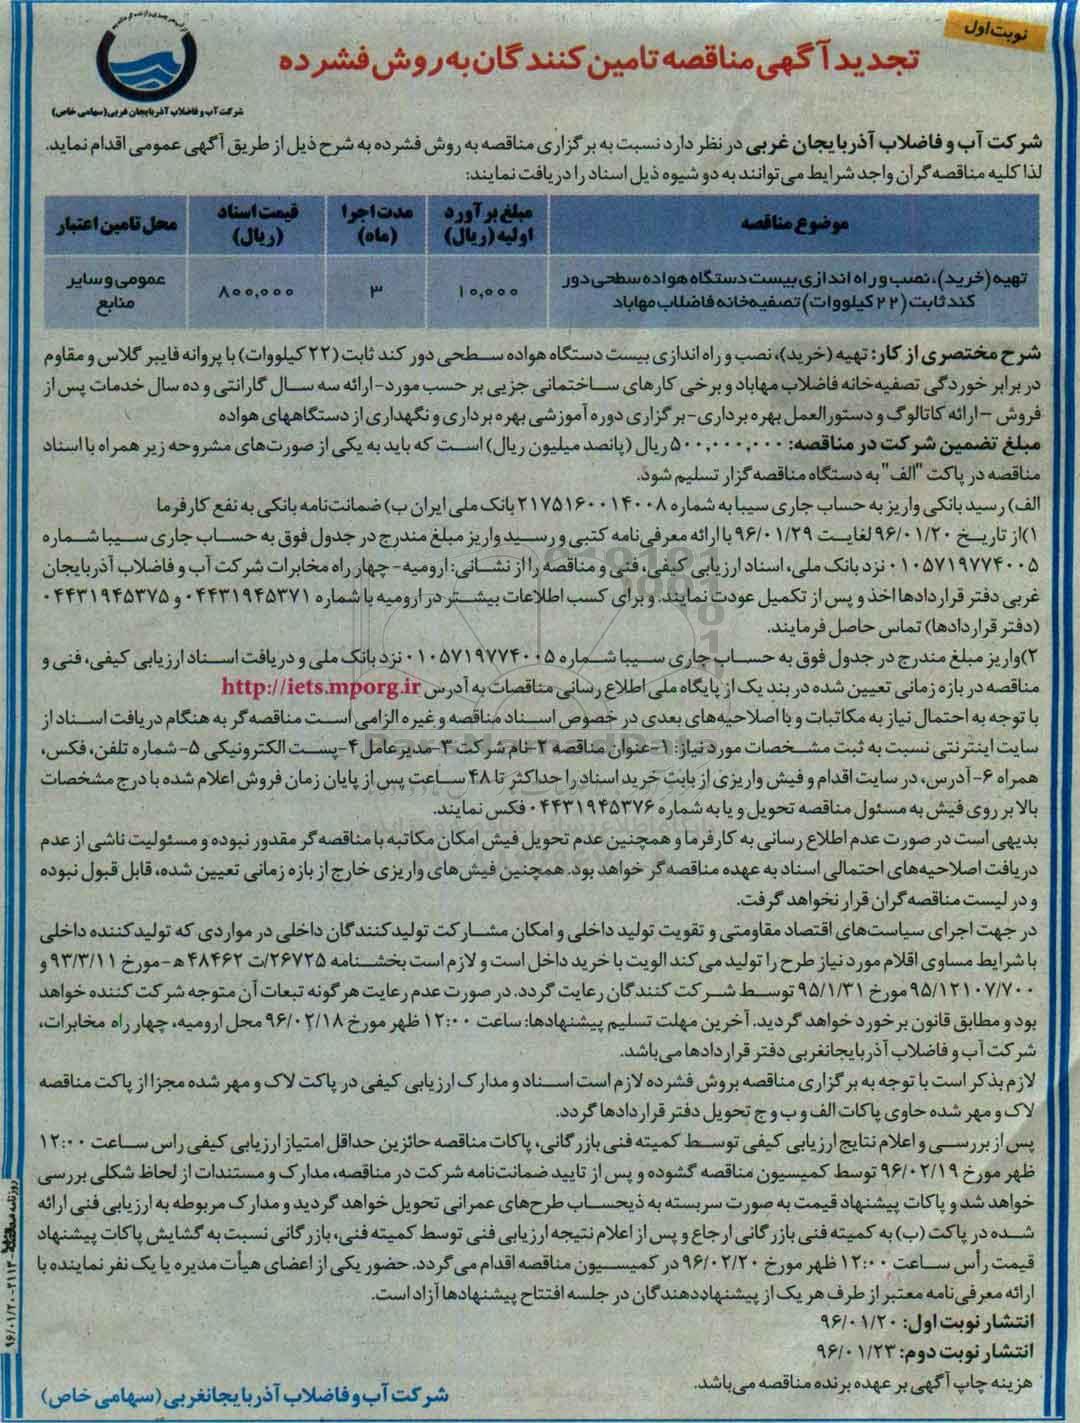 نوبت اول
تجدید آگهی مناقصه تامین کنندگان به روش فشرده
شرکت آب و فاضلاب آذربایجان غربی (سهامی خاص)
شرکت آب و فاضلاب آذربایجان غربی در نظر دارد نسبت به برگزاری مناقصه به روش فشرده به شرح ذیل از طریق آگهی عمومی اقدام نماید.
لذا کلیه مناقصه گران واجد شرایط می توانند به دو شیوه ذیل اسناد را دریافت نمایند:
موضوع مناقصه
مبلغ برآورد اولیه (ریال)
مدت اجرا (ماه)
قیمت اسناد (ریال)
محل تامین اعتبار
تهیه (خرید)، نصب و راه اندازی بیست دستگاه هواده سطحی دور
کند ثابت (۲۲ کیلووات) تصفیه خانه فاضلاب مهاباد
۱۰,۰۰۰
۳
۸۰۰,۰۰۰
عمومی و سایر منابع
شرح مختصری از کار: تهیه (خرید)، نصب و راه اندازی بیست دستگاه هواده سطحی دور کند ثابت (۲۲ کیلووات) با پروانه فایبر گلاس و مقاوم
در برابر خوردگی تصفیه خانه فاضلاب مهاباد و برخی کارهای ساختمانی جزیی بر حسب مورد-ارائه سه سال گارانتی و ده سال خدمات پس از
فروش –ارائه کاتالوگ و دستورالعمل بهره برداری-برگزاری دوره آموزشی بهره برداری و نگهداری از دستگاههای هواده
مبلغ تضمین شرکت در مناقصه: ۵۰۰,۰۰۰,۰۰۰ ریال (پانصد میلیون ریال) است که باید به یکی از صورت‌های مشروحه زیر همراه با اسناد
مناقصه در پاکت "الف" به دستگاه مناقصه گزار تسلیم شود.
الف) رسید بانکی واریز به حساب جاری سیبا به شماره ۲۱۷۵۱۶۰۰۱۴۰۰۸ بانک ملی ایران ب) ضمانت‌نامه بانکی به نفع کارفرما
۱)از تاریخ ۹۶/۰۱/۲۰ لغایت ۹۶/۰۱/۲۹ با ارائه معرفی نامه کتبی و رسید واریز مبلغ مندرج در جدول فوق به حساب جاری سیبا شماره
۰۱۰۵۷۱۹۷۷۴۰۰۵ نزد بانک ملی، اسناد ارزیابی کیفی، فنی و مناقصه را از نشانی: ارومیه-چهار راه مخابرات شرکت آب و فاضلاب آذربایجان
غربی دفتر قراردادها اخذ و پس از تکمیل عودت نمایند. و برای کسب اطلاعات بیشتر در ارومیه با شماره ۰۴۴۳۱۹۴۵۳۷۱ و ۰۴۴۳۱۹۴۵۳۷۵
(دفتر قراردادها) تماس حاصل فرمایند.
۲)واریز مبلغ مندرج در جدول فوق به حساب جاری سیبا شماره ۰۱۰۵۷۱۹۷۷۴۰۰۵ نزد بانک ملی و دریافت اسناد ارزیابی کیفی، فنی و
مناقصه در بازه زمانی تعیین شده در بند یک از پایگاه ملی اطلاع رسانی مناقصات به آدرس http://iets.mporg.ir
با توجه به احتمال نیاز به مکاتبات و یا اصلاحیه‌های بعدی در خصوص اسناد مناقصه و غیره الزامی است مناقصه گر به هنگام دریافت اسناد از
سایت اینترنتی نسبت به ثبت مشخصات مورد نیاز: ۱-عنوان مناقصه ۲-نام شرکت ۳-مدیرعامل ۴-پست الکترونیکی ۵-شماره تلفن، فکس،
همراه ۶-آدرس، در سایت اقدام و فیش واریزی از بابت خرید اسناد را حداکثر تا ۴۸ ساعت پس از پایان زمان فروش اعلام شده با درج مشخصات
بالا بر روی فیش به مسئول مناقصه تحویل و یا به شماره ۰۴۴۳۱۹۴۵۳۷۶ فکس نمایند.
بدیهی است در صورت عدم اطلاع رسانی به کارفرما و همچنین عدم تحویل فیش امکان مکاتبه با مناقصه گر مقدور نبوده و مسئولیت ناشی از عدم
دریافت اصلاحیه‌های احتمالی اسناد به عهده مناقصه گر خواهد بود. همچنین فیش‌های واریزی خارج از بازه زمانی تعیین شده، قابل قبول نبوده
و در لیست مناقصه گران قرار نخواهد گرفت.
در جهت اجرای سیاست‌های اقتصاد مقاومتی و تقویت تولید داخلی و امکان مشارکت تولیدکنندگان داخلی در مواردی که تولیدکننده داخلی
با شرایط مساوی اقلام مورد نیاز طرح را تولید می کند الویت با خرید داخل است و لازم است بخشنامه ۲۶۷۲۵/ت ۴۸۴۶۲ ه-مورخ ۹۳/۳/۱۱ و
۹۵/۱۲۱۰۷/۷۰۰ مورخ ۹۵/۱/۳۱ توسط شرکت کنندگان رعایت گردد. در صورت عدم رعایت هرگونه تبعات آن متوجه شرکت کننده خواهد
بود و مطابق قانون برخورد خواهد گردید. آخرین مهلت تسلیم پیشنهادها: ساعت ۱۲:۰۰ ظهر مورخ ۹۶/۰۲/۱۸ محل ارومیه، چهار راه مخابرات،
شرکت آب و فاضلاب آذربایجانغربی دفتر قراردادها می‌باشد.
لازم بذکر است با توجه به برگزاری مناقصه بروش فشرده لازم است اسناد و مدارک ارزیابی کیفی در پاکت لاک و مهر شده مجزا از پاکت مناقصه
لاک و مهر شده حاوی پاکات الف و ب و ج تحویل دفتر قراردادها گردد.
پس از بررسی و اعلام نتایج ارزیابی کیفی توسط کمیته فنی بازرگانی، پاکات مناقصه حائزین حداقل امتیاز ارزیابی کیفی راس ساعت ۱۲:۰۰
ظهر مورخ ۹۶/۰۲/۱۹ توسط کمیسیون مناقصه گشوده و پس از تایید ضمانت‌نامه شرکت در مناقصه، مدارک و مستندات از لحاظ شکلی بررسی
خواهد شد و پاکات پیشنهاد قیمت به صورت سربسته به ذیحساب طرح‌های عمرانی تحویل خواهد گردید و مدارک مربوطه به ارزیابی فنی ارائه
شده در پاکت (ب) به کمیته فنی بازرگانی ارجاع و پس از اعلام نتیجه ارزیابی فنی توسط کمیته فنی، بازرگانی نسبت به گشایش پاکات پیشنهاد
قیمت رأس ساعت ۱۲:۰۰ ظهر مورخ ۹۶/۰۲/۲۰ در کمیسیون مناقصه اقدام می گردد. حضور یکی از اعضای هیأت مدیره یا یک نفر نماینده با
ارائه معرفی نامه معتبر از طرف هر یک از پیشنهاددهندگان در جلسه افتتاح پیشنهادها آزاد است.
انتشار نوبت اول: ۹۶/۰۱/۲۰
انتشار نوبت دوم: ۹۶/۰۱/۲۳
هزینه چاپ آگهی بر عهده برنده مناقصه می‌باشد.
شرکت آب و فاضلاب آذربایجانغربی (سهامی خاص)
روزنامه مناقصه ۲۱۱۳-۹۶/۰۱/۲۰